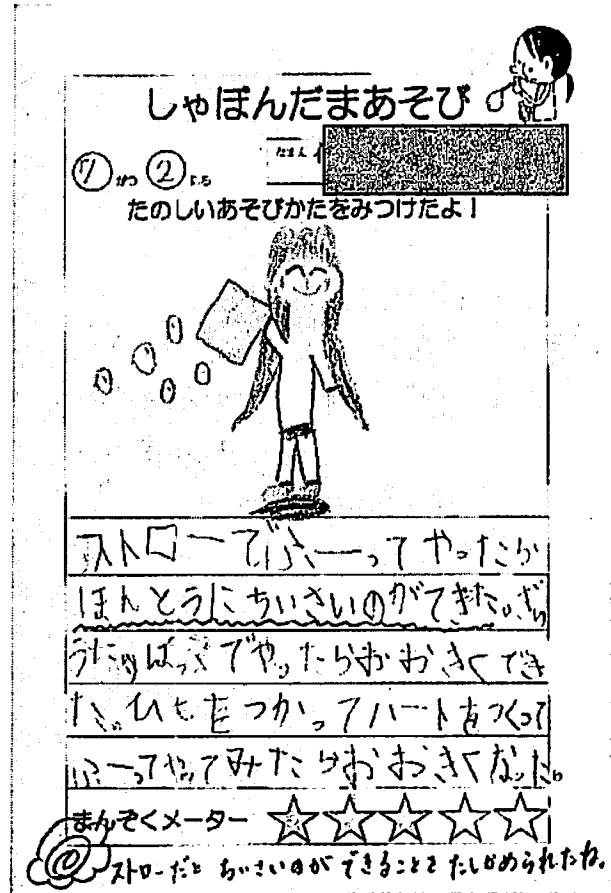 しゃぼんだまあそび
なまえ
7がつ2にち
たのしいあそびかたをみつけたよ！
ストローでふーってやったら
ほんとうにちいさいのができた。ぎゅ
うにゅうぱっくでやったらおおきくでき
た。ひもをつかってハートをつくって
ふーってやってみたらおおきくなった。
まんぞくメーター ☆☆☆☆☆
ストローだと ちいさいのが できることを たしかめられたね。